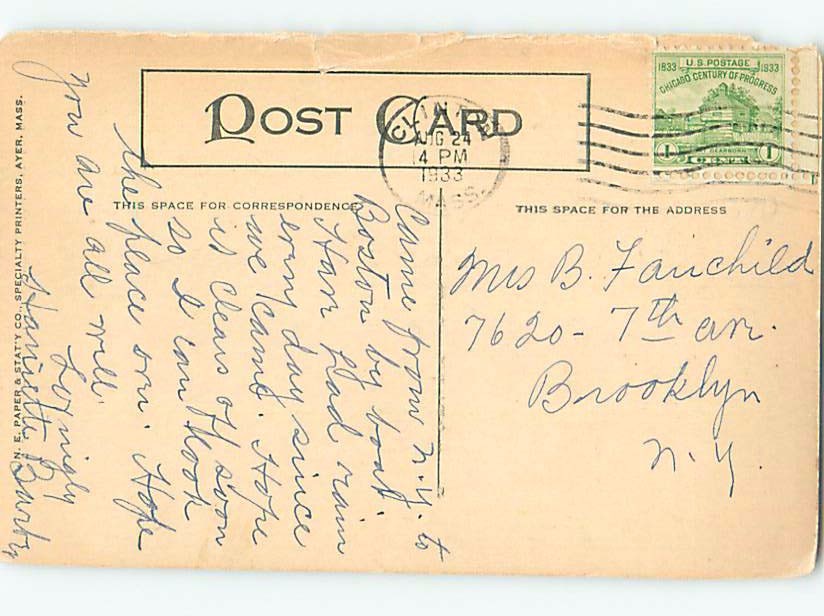 POST CARD
CLINTON
AUG 24
4 PM
1933
MASS.
1833 U.S. POSTAGE 1933
CHICAGO CENTURY OF PROGRESS
1 CENT 1
THIS SPACE FOR CORRESPONDENCE
THIS SPACE FOR THE ADDRESS
Came from N.Y. to
Boston by boat.
Have had rain
every day since
we came. Hope
is clears off soon
so I can look
the place over. Hope
you are all well.
Lovingly
Harriette
Mrs B. Fairchild
7620 - 7th ave.
Brooklyn
N.Y.
N. E. PAPER & STAT'Y CO., SPECIALTY PRINTERS, AYER, MASS.